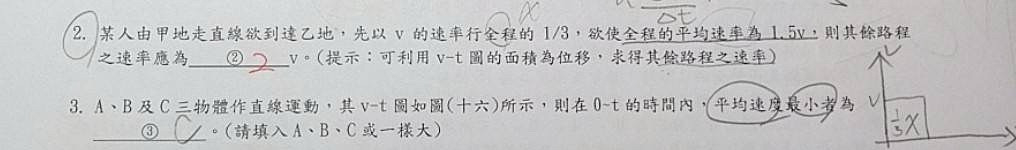 x
Δt
2. 某人由甲地走直線欲到達乙地，先以 v 的速率行全程的 1/3，欲使全程的平均速率為 1.5v，則其餘路程
之速率應為 ② 2 v。(提示：可利用 v-t 圖的面積為位移，求得其餘路程之速率)
3. A、B 及 C 三物體作直線運動，其 v-t 圖如圖(十六)所示，則在 0~t 的時間內，平均速度最小者為
③ C 。(請填入 A、B、C 或一樣大)
V
V
1/3 x